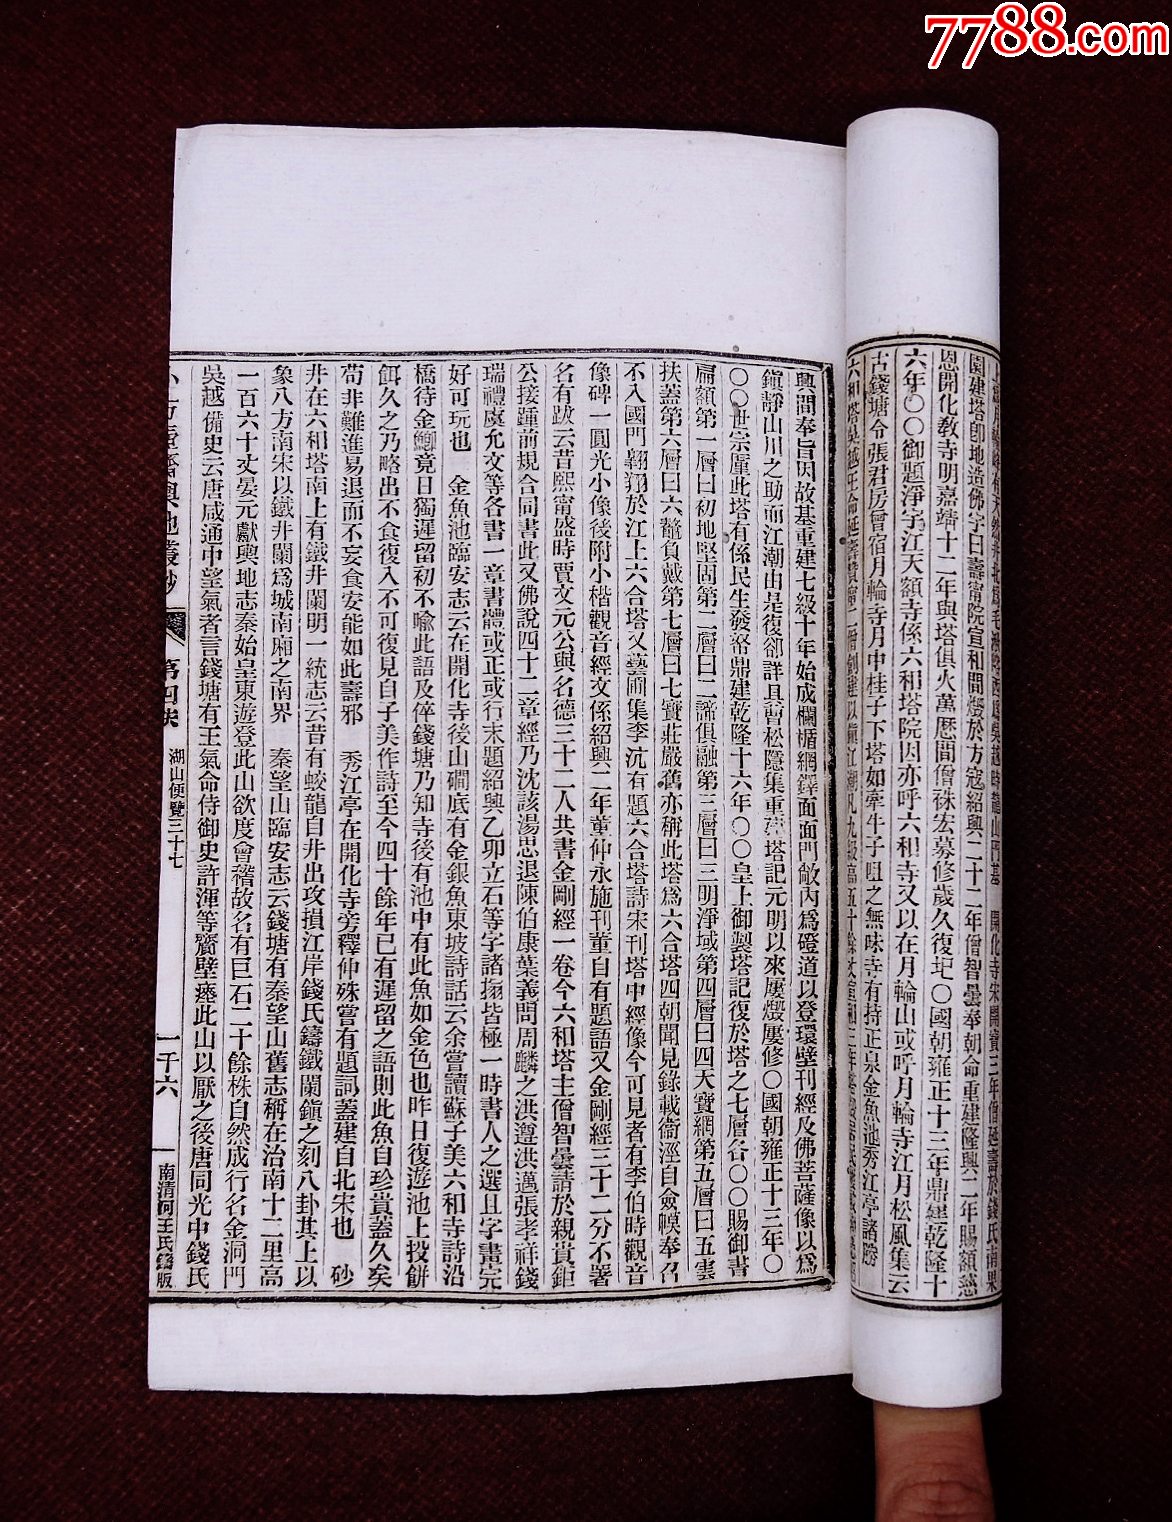 7788.com
園建塔卽地造佛宇曰壽寧院宣和間燬於方寇紹興二十二年僧智曇奉朝命重建隆興二年賜額慈
恩開化教寺明嘉靖十二年與塔俱火萬歷間僧袾宏募修歲久復圮〇國朝雍正十三年鼎建乾隆十
六年〇〇御題淨宇江天額寺係六和塔院因亦呼六和寺又以在月輪山或呼月輪寺江月松風集云
古錢塘令張君房曾宿月輪寺月中桂子下塔如牽牛子咀之無味寺有持正泉金魚池秀江亭諸勝
六和塔吳越王命延壽贊寧二僧創建以鎮江潮凡九級高五十餘丈宣和三年
興間奉旨因故基重建七級十年始成欄楯網鐸面面門敞內爲磴道以登環壁刊經及佛菩薩像以爲
鎮靜山川之助而江潮由是復卻詳具曹松隱集重建塔記元明以來屢燬屢修〇國朝雍正十三年〇
〇〇世宗厪此塔有係民生發帑鼎建乾隆十六年〇〇皇上御製塔記復於塔之七層各〇〇賜御書
扁額第一層曰初地堅固第二層曰二諦俱融第三層曰三明淨域第四層曰四天寶網第五層曰五雲
扶蓋第六層曰六鼇負戴第七層曰七寶莊嚴舊亦稱此塔爲六合塔四朝聞見錄載衞涇自僉幙奉召
不入國門翺翔於江上六合塔又藝圃集李沆有題六合塔詩宋刊塔中經像今可見者有李伯時觀音
像碑一圓光小像後附小楷觀音經文係紹興二年董仲永施刊董自有題語又金剛經三十二分不署
名有跋云昔熙甯盛時賈文元公與名德三十二人共書金剛經一卷今六和塔主僧智曇請於親貴鉅
公接踵前規合同書此又佛說四十二章經乃沈該湯思退陳伯康葉義問周麟之洪遵洪邁張孝祥錢
瑞禮虞允文等各書一章書體或正或行末題紹興乙卯立石等字諸搨皆極一時書人之選且字畫完
好可玩也　金魚池臨安志云在開化寺後山磵底有金銀魚東坡詩話云余嘗讀蘇子美六和寺詩沿
橋待金鯽竟日獨遲留初不喻此語及倅錢塘乃知寺後有池中有此魚如金色也昨日復遊池上投餅
餌久之乃略出不食復入不可復見自子美作詩至今四十餘年已有遲留之語則此魚自珍貴蓋久矣
苟非難進易退而不妄食安能如此壽邪　秀江亭在開化寺旁釋仲殊嘗有題詞蓋建自北宋也　砂
井在六和塔南上有鐵井闌明一統志云昔有蛟龍自井出攻損江岸錢氏鑄鐵闌鎮之刻八卦其上以
象八方南宋以鐵井闌爲城南廂之南界　秦望山臨安志云錢塘有秦望山舊志稱在治南十二里高
一百六十丈晏元獻輿地志秦始皇東遊登此山欲度會稽故名有巨石二十餘株自然成行名金洞門
吳越備史云唐咸通中望氣者言錢塘有王氣命侍御史許渾等齎璧瘞此山以厭之後唐同光中錢氏
小方壺齋輿地叢鈔　第四帙　湖山便覽三十七　一千六　南清河王氏鑄版